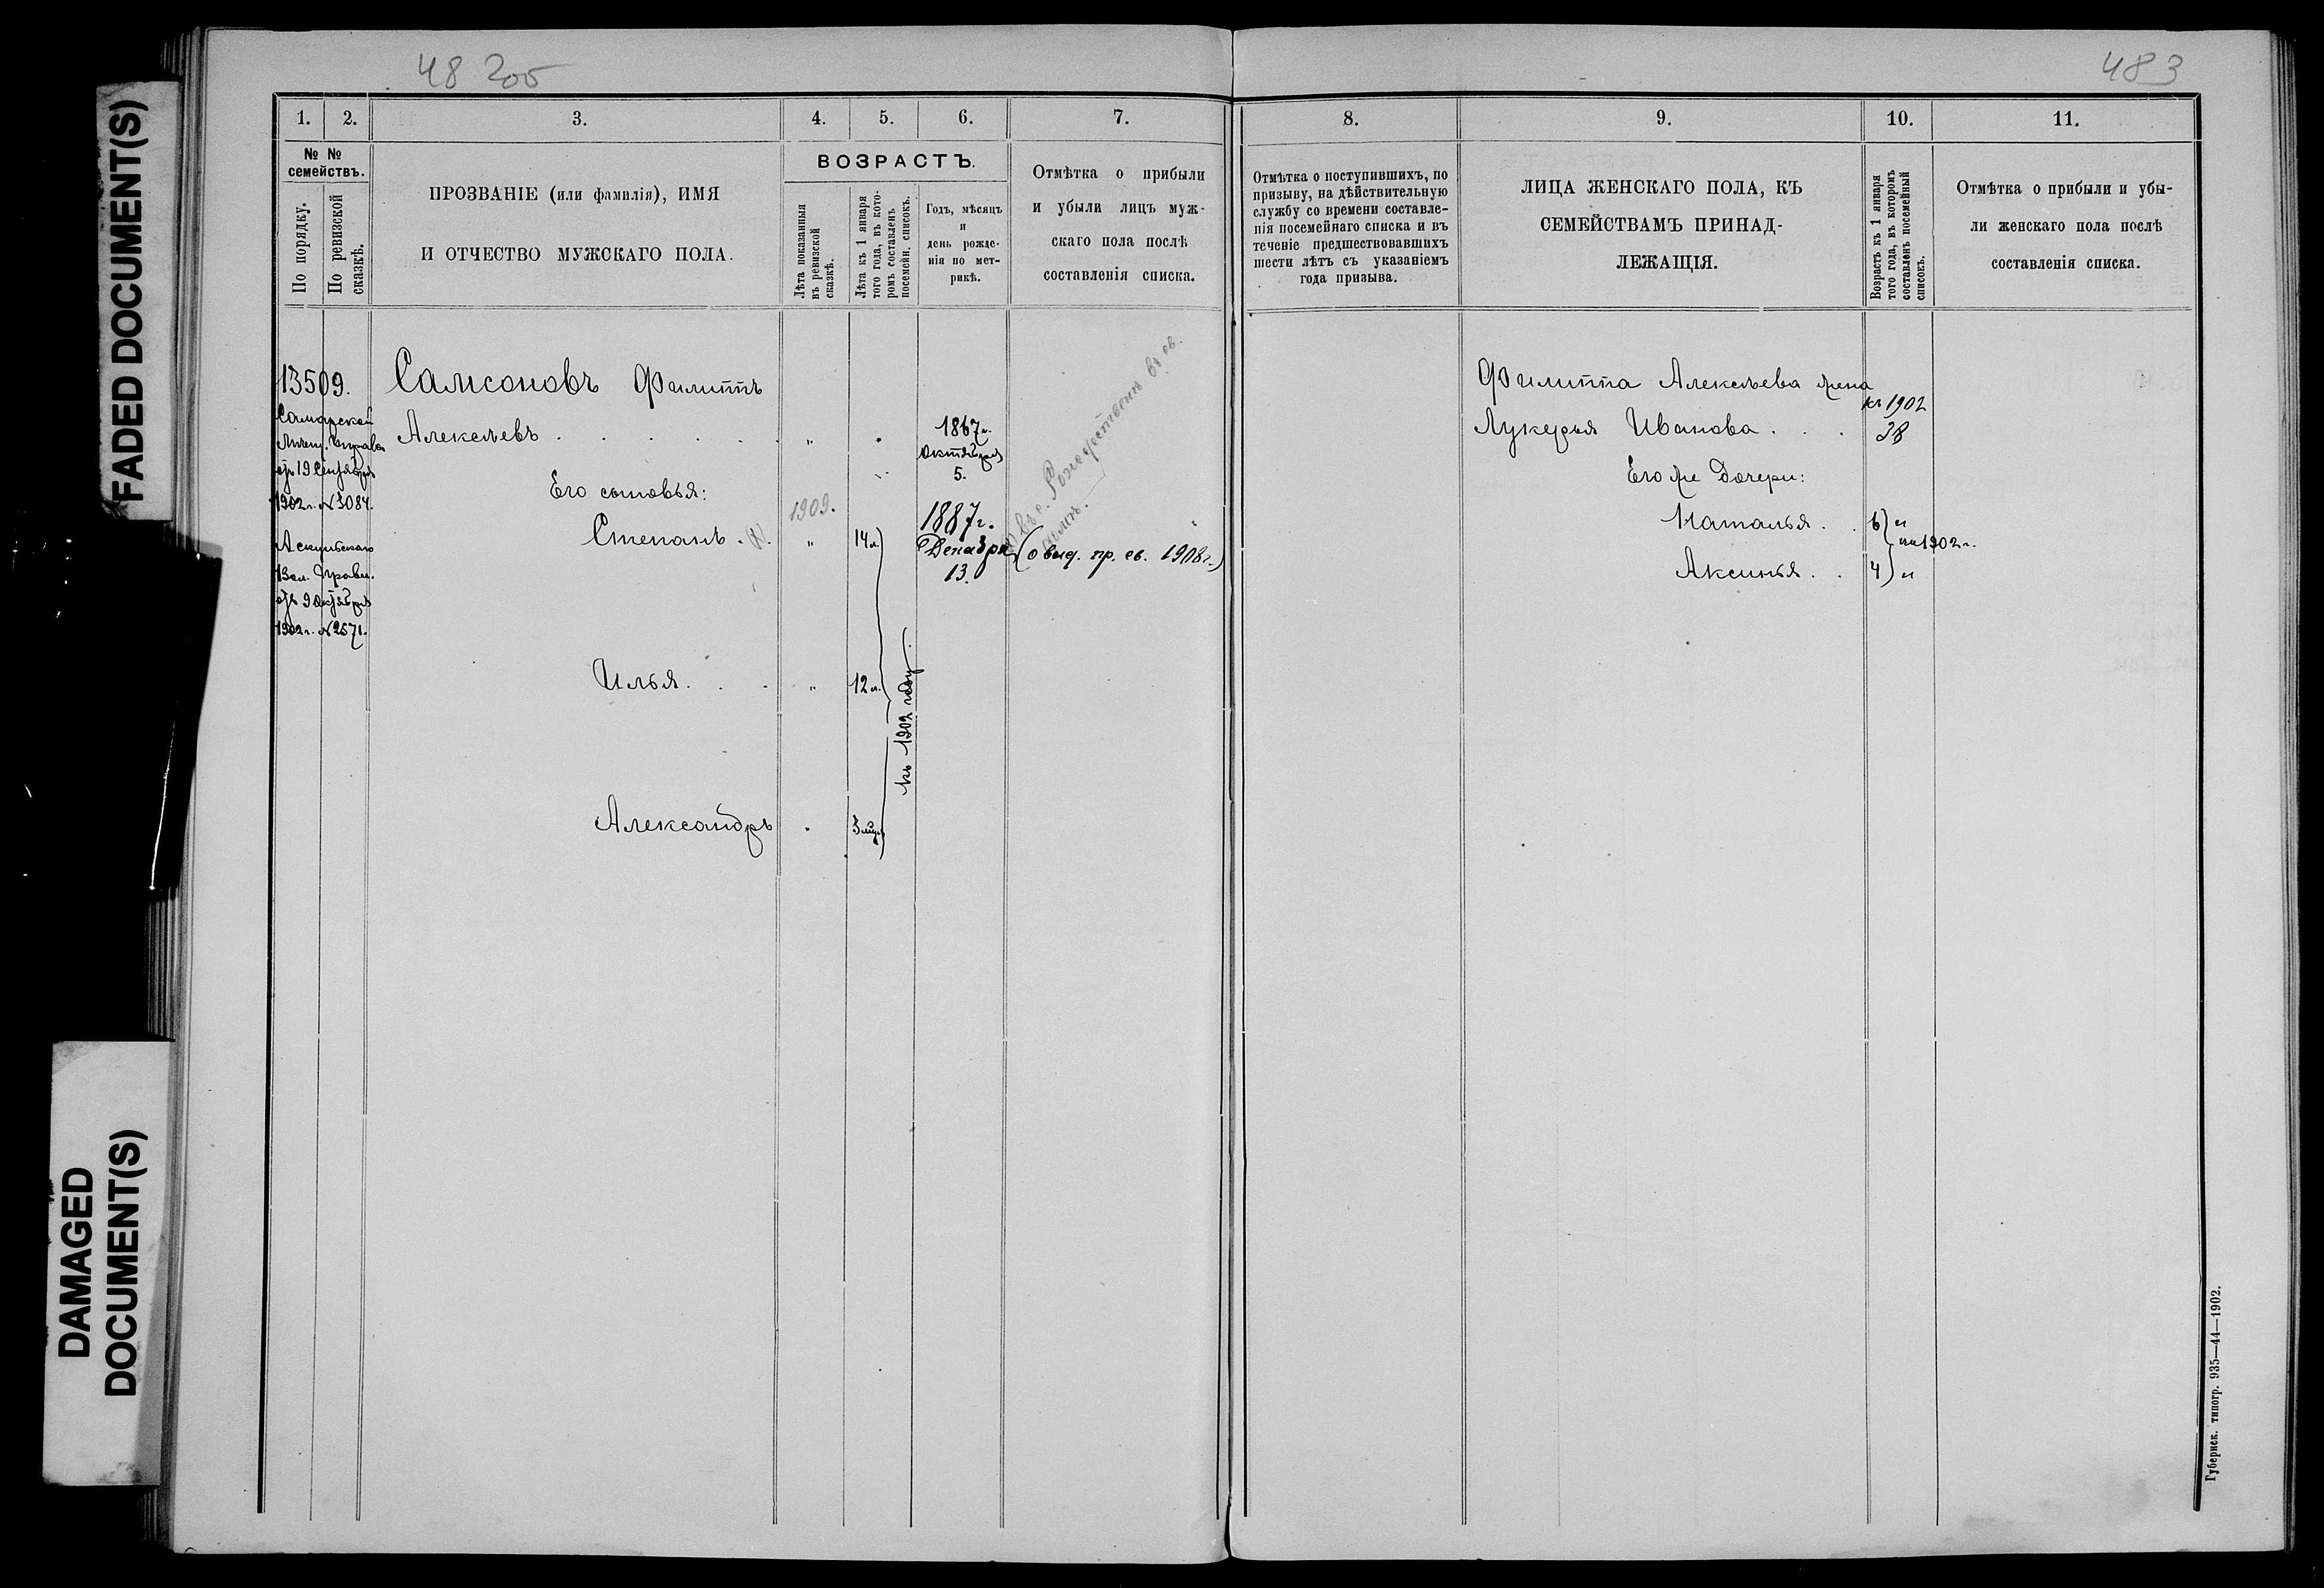 FADED DOCUMENT(S)
DAMAGED
DOCUMENT(S)
48 205
483
1. 2. 3. 4. 5. 6. 7. 8. 9. 10. 11.
№ №
семействъ.
По порядку.
По ревизской
сказкѣ.
ПРОЗВАНІЕ (или фамилія), ИМЯ
И ОТЧЕСТВО МУЖСКАГО ПОЛА.
ВОЗРАСТЪ.
Лѣта показанныя
въ ревизской
сказкѣ.
Лѣта къ 1 января
того года, въ кото-
ромъ составленъ
посемейн. списокъ.
Годъ, мѣсяцъ
и
день рожде-
нія по мет-
рикѣ.
Отмѣтка о прибыли
и убыли лицъ муж-
скаго пола послѣ
составленія списка.
Отмѣтка о поступившихъ, по
призыву, на дѣйствительную
службу со времени составле-
нія посемейнаго списка и въ
теченіе предшествовавшихъ
шести лѣтъ съ указаніемъ
года призыва.
ЛИЦА ЖЕНСКАГО ПОЛА, КЪ
СЕМЕЙСТВАМЪ ПРИНАД-
ЛЕЖАЩІЯ.
Возрастъ къ 1 января
того года, въ которомъ
составленъ посемейный
списокъ.
Отмѣтка о прибыли и убы-
ли женскаго пола послѣ
составленія списка.
13509.
Самарской
Мѣщ. Управы
отъ 19 Сентября
1902 г. № 3084.
Вол. Правл.
отъ 9 Октября
1902 г. № 2571.
Самсоновъ Филиппъ
Алексѣевъ . . . . . . „
1867 г.
Октября
5.
Его сыновья:
1909.
Степанъ . „ 14 л.
1887 г.
Декабря
13.
(о выд. пр. св. 1908 г.)
Рождественъ
Илья . . . „ 12 л.
къ 1902 году.
Александръ
Филиппа Алексѣева жена
къ 1902
Лукерья Иванова . . . 38
Его же дочери:
Наталья . . 6) л
къ 1902 г.
Аксинья . . 4) л
Губернск. типогр. 935—44—1902.